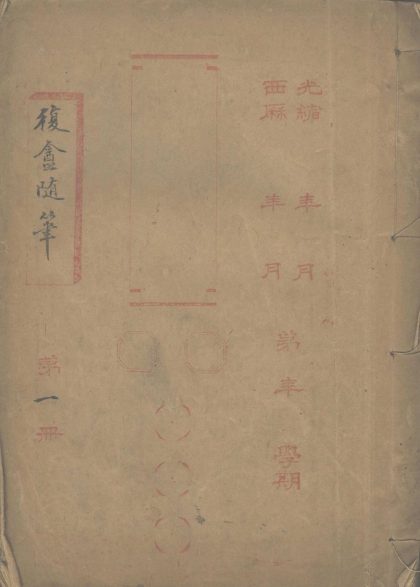 光緒 年 月
西曆 年 月
第 年 學期
復盦隨筆
第一冊